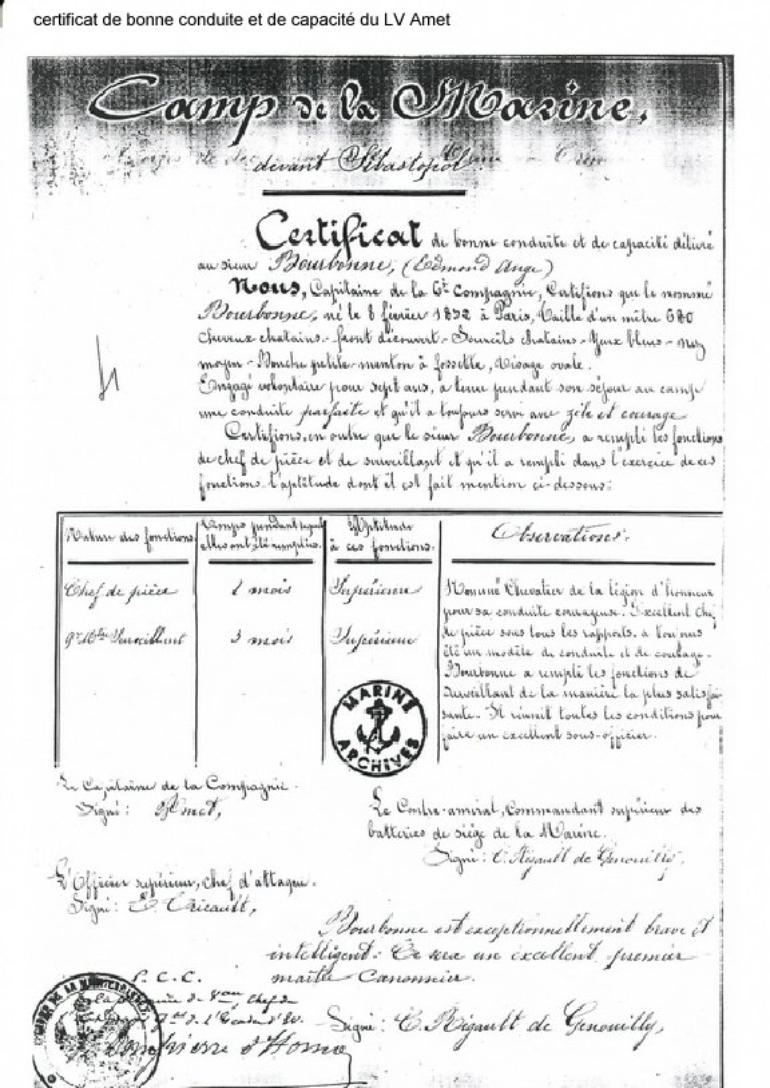 certificat de bonne conduite et de capacité du LV Amet
Camp de la Marine,
devant Sébastopol.
Certificat de bonne conduite et de capacité délivré
au sieur Bourbonne, (Edmond Ange)
Nous, Capitaine de la 6e Compagnie, Certifions que le nommé
Bourbonne, né le 8 février 1832 à Paris, Taille d'un mètre 680
Cheveux chatains - front découvert - Sourcils chatains - Yeux bleus - nez
moyen - Bouche petite - menton à fossette, Visage ovale.
Engagé volontaire pour sept ans, a tenu pendant son séjour au camp
une conduite parfaite et qu'il a toujours servi avec zèle et courage
Certifions, en outre que le sieur Bourbonne, a rempli les fonctions
de chef de pièce et de surveillant et qu'il a rempli dans l'exercice de ces
fonctions l'aptitude dont il est fait mention ci-dessous:
Nature des fonctions.
Temps pendant lequel
elles ont été remplies.
Aptitude
à ces fonctions.
Observations.
Chef de pièce
mois
Supérieure
Surveillant
3 mois
Supérieure
Nommé Chevalier de la légion d'honneur
pour sa conduite courageuse. Excellent Chef
de pièce sous tous les rapports. a toujours
été un modèle de conduite et de courage.
Bourbonne a rempli les fonctions de
surveillant de la manière la plus satisfai-
sante. Il réunit toutes les conditions pour
faire un excellent sous-officier.
MARINE
ARCHIVES
Le Capitaine de la Compagnie.
Signé: Amet,
Le Contre-amiral, Commandant supérieur des
batteries de siège de la Marine.
Signé: C. Rigault de Genouilly,
L'Officier supérieur, chef d'attaque.
Signé: E. Tricault,
Bourbonne est exceptionnellement brave et
intelligent: Ce sera un excellent premier
maitre Canonnier.
P. C. C.
Signé: C. Rigault de Genouilly,